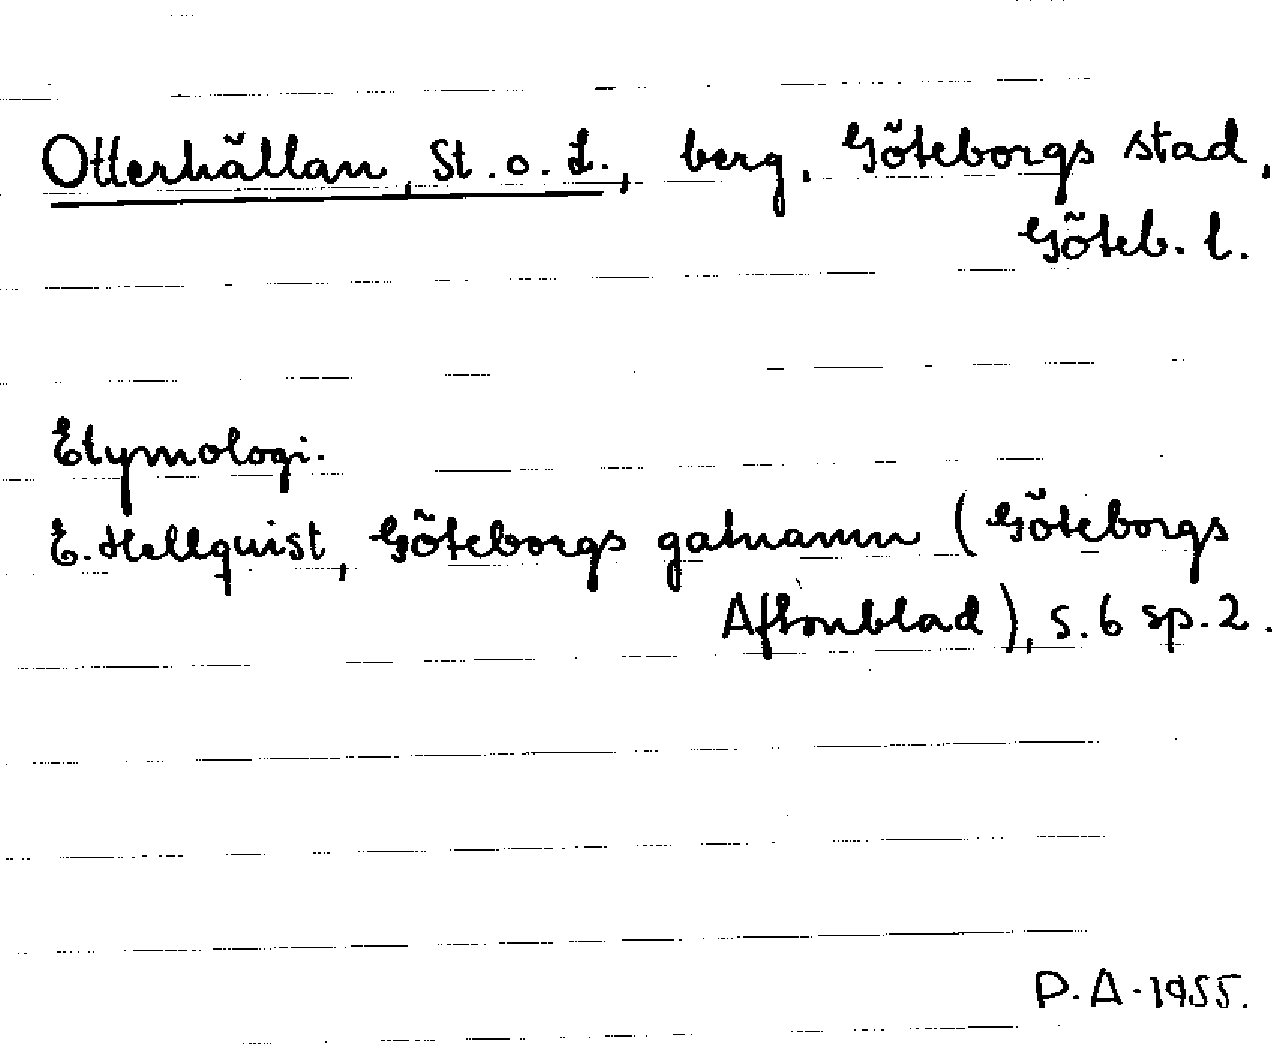 Otterhällan, St. o. L., berg, Göteborgs stad,
Göteb. l.
Etymologi.
E. Hellquist, Göteborgs gatnamn (Göteborgs
Aftonblad), s. 6 sp. 2.
P. A. 1955.